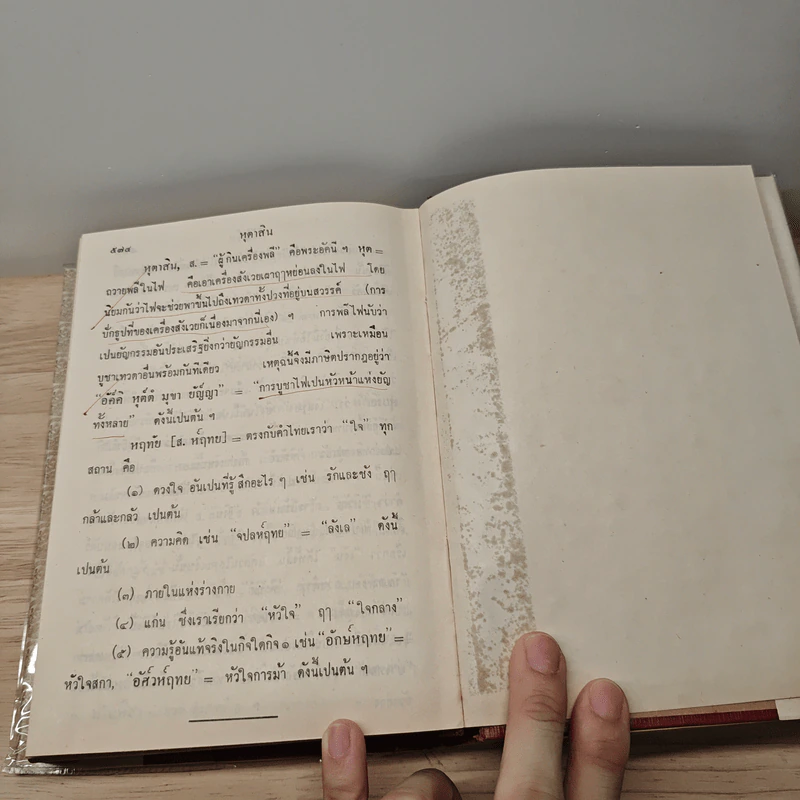 ๕๗๔
หุตาสิน
หุตาสิน, ส. = "ผู้กินเครื่องพลี" คือพระอัคนี ฯ หุต =
ถวายพลีในไฟ คือเอาเครื่องสังเวยเผาฤๅหย่อนลงในไฟ โดย
นิยมกันว่าไฟจะช่วยพาขึ้นไปถึงเทวดาทั้งปวงที่อยู่บนสวรรค์ (การ
ปักธูปที่ของเครื่องสังเวยก็เนื่องมาจากนี่เอง) ฯ การพลีไฟนับว่า
เปนยัญกรรมอันประเสริฐยิ่งกว่ายัญกรรมอื่น เพราะเหมือน
บูชาเทวดาอื่นพร้อมกันทีเดียว เหตุฉนี้จึงมีภาษิตปรากฎอยู่ว่า
"อัคคิ หุตตํ มุขา ยัญญา" = "การบูชาไฟเปนหัวหน้าแห่งยัญ
ทั้งหลาย" ดังนี้เปนต้น ฯ
หฤทัย [ส. ห์ฤทย] = ตรงกับคำไทยเราว่า "ใจ" ทุก
สถาน คือ
(๑) ดวงใจ อันเปนที่รู้สึกอะไร ๆ เช่น รักและชัง ฤๅ
กล้าและกลัว เปนต้น
(๒) ความคิด เช่น "จปลห์ฤทย" = "ลังเล" ดังนี้
เปนต้น
(๓) ภายในแห่งร่างกาย
(๔) แก่น ซึ่งเราเรียกว่า "หัวใจ" ฤๅ "ใจกลาง"
(๕) ความรู้อันแท้จริงในกิจใดกิจ ๑ เช่น "อักษ์หฤทย" =
หัวใจสกา, "อัศ์วห์ฤทย" = หัวใจการม้า ดังนี้เปนต้น ฯ